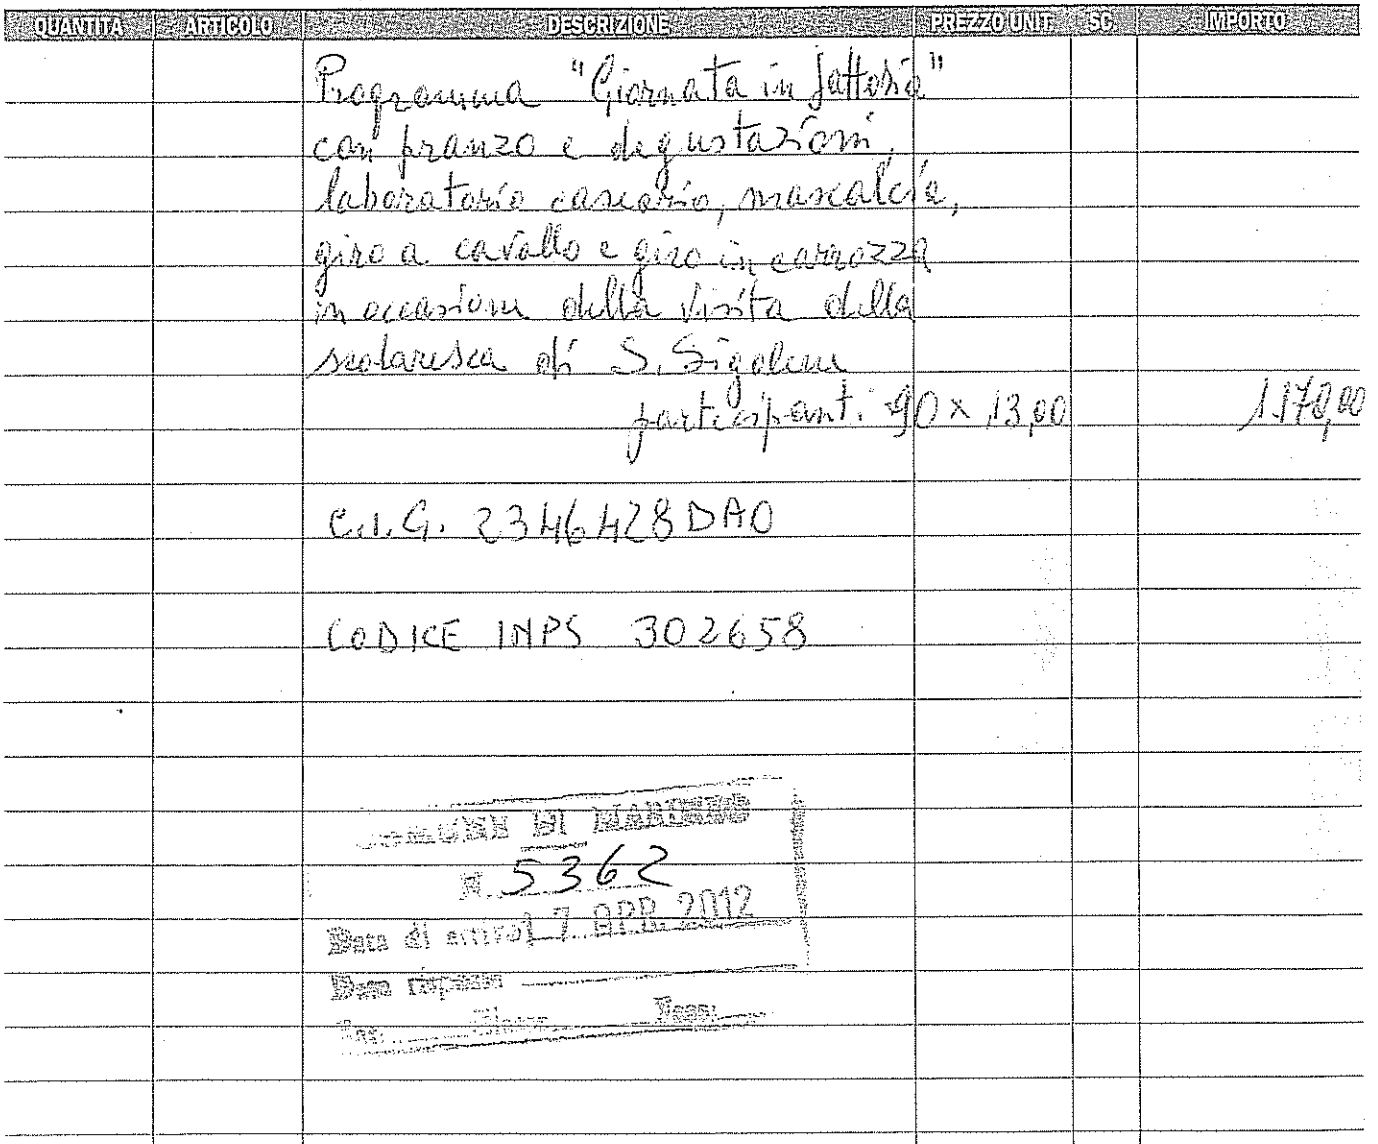 QUANTITÀ ARTICOLO DESCRIZIONE PREZZO UNIT. SC. IMPORTO
Programma "Giornata in fattoria"
con pranzo e degustazioni,
laboratorio caseario, mascalcia,
giro a cavallo e giro in carrozza
in occasione della visita della
scolaresca di S. Sigolene
partecipanti 90 x 13,00 1.170,00
C.I.G. 2346428DA0
CODICE INPS 302658
COMUNE DI MARINEO
N. 5362
Data di arrivo 17 APR. 2012
Data risposta